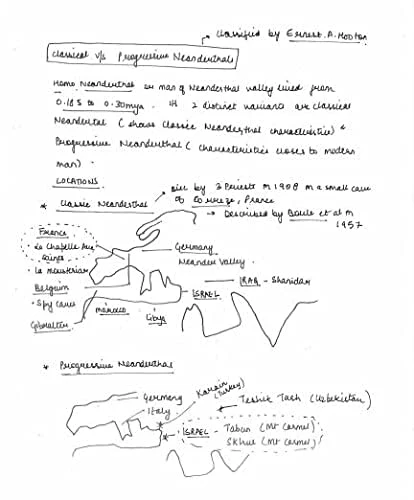 classified by Ernest. A. Hooton
Classical v/s Progressive Neanderthals
Homo Neanderthal or man of Neanderthal valley lived from
0.185 to 0.30mya. 2 distinct variants are classical
Neandertal (shows classic Neanderthal characteristics) &
Progressive Neanderthal (characteristics closer to modern
man).
LOCATIONS
* Classic Neanderthal
disc by 3 Priests in 1908 in a small cave
of Correze, France
Described by Boule et al in
1957
France
• La Chapelle Aux
Saints
• La moustrian
Belgium
• Spy caves
Gibraltar
Germany
Neander Valley.
morocco
libya
ISRAEL
IRAQ - Shanidar
* Progressive Neanderthal
Germany
Italy
Karain
(Turkey)
Teshik Tash (Uzbekistan)
* ISRAEL - Taban (Mt Carmel)
Skhul (Mt Carmel)